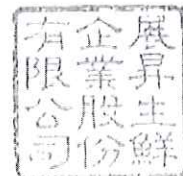 展昇生鮮
企業股份
有限公司